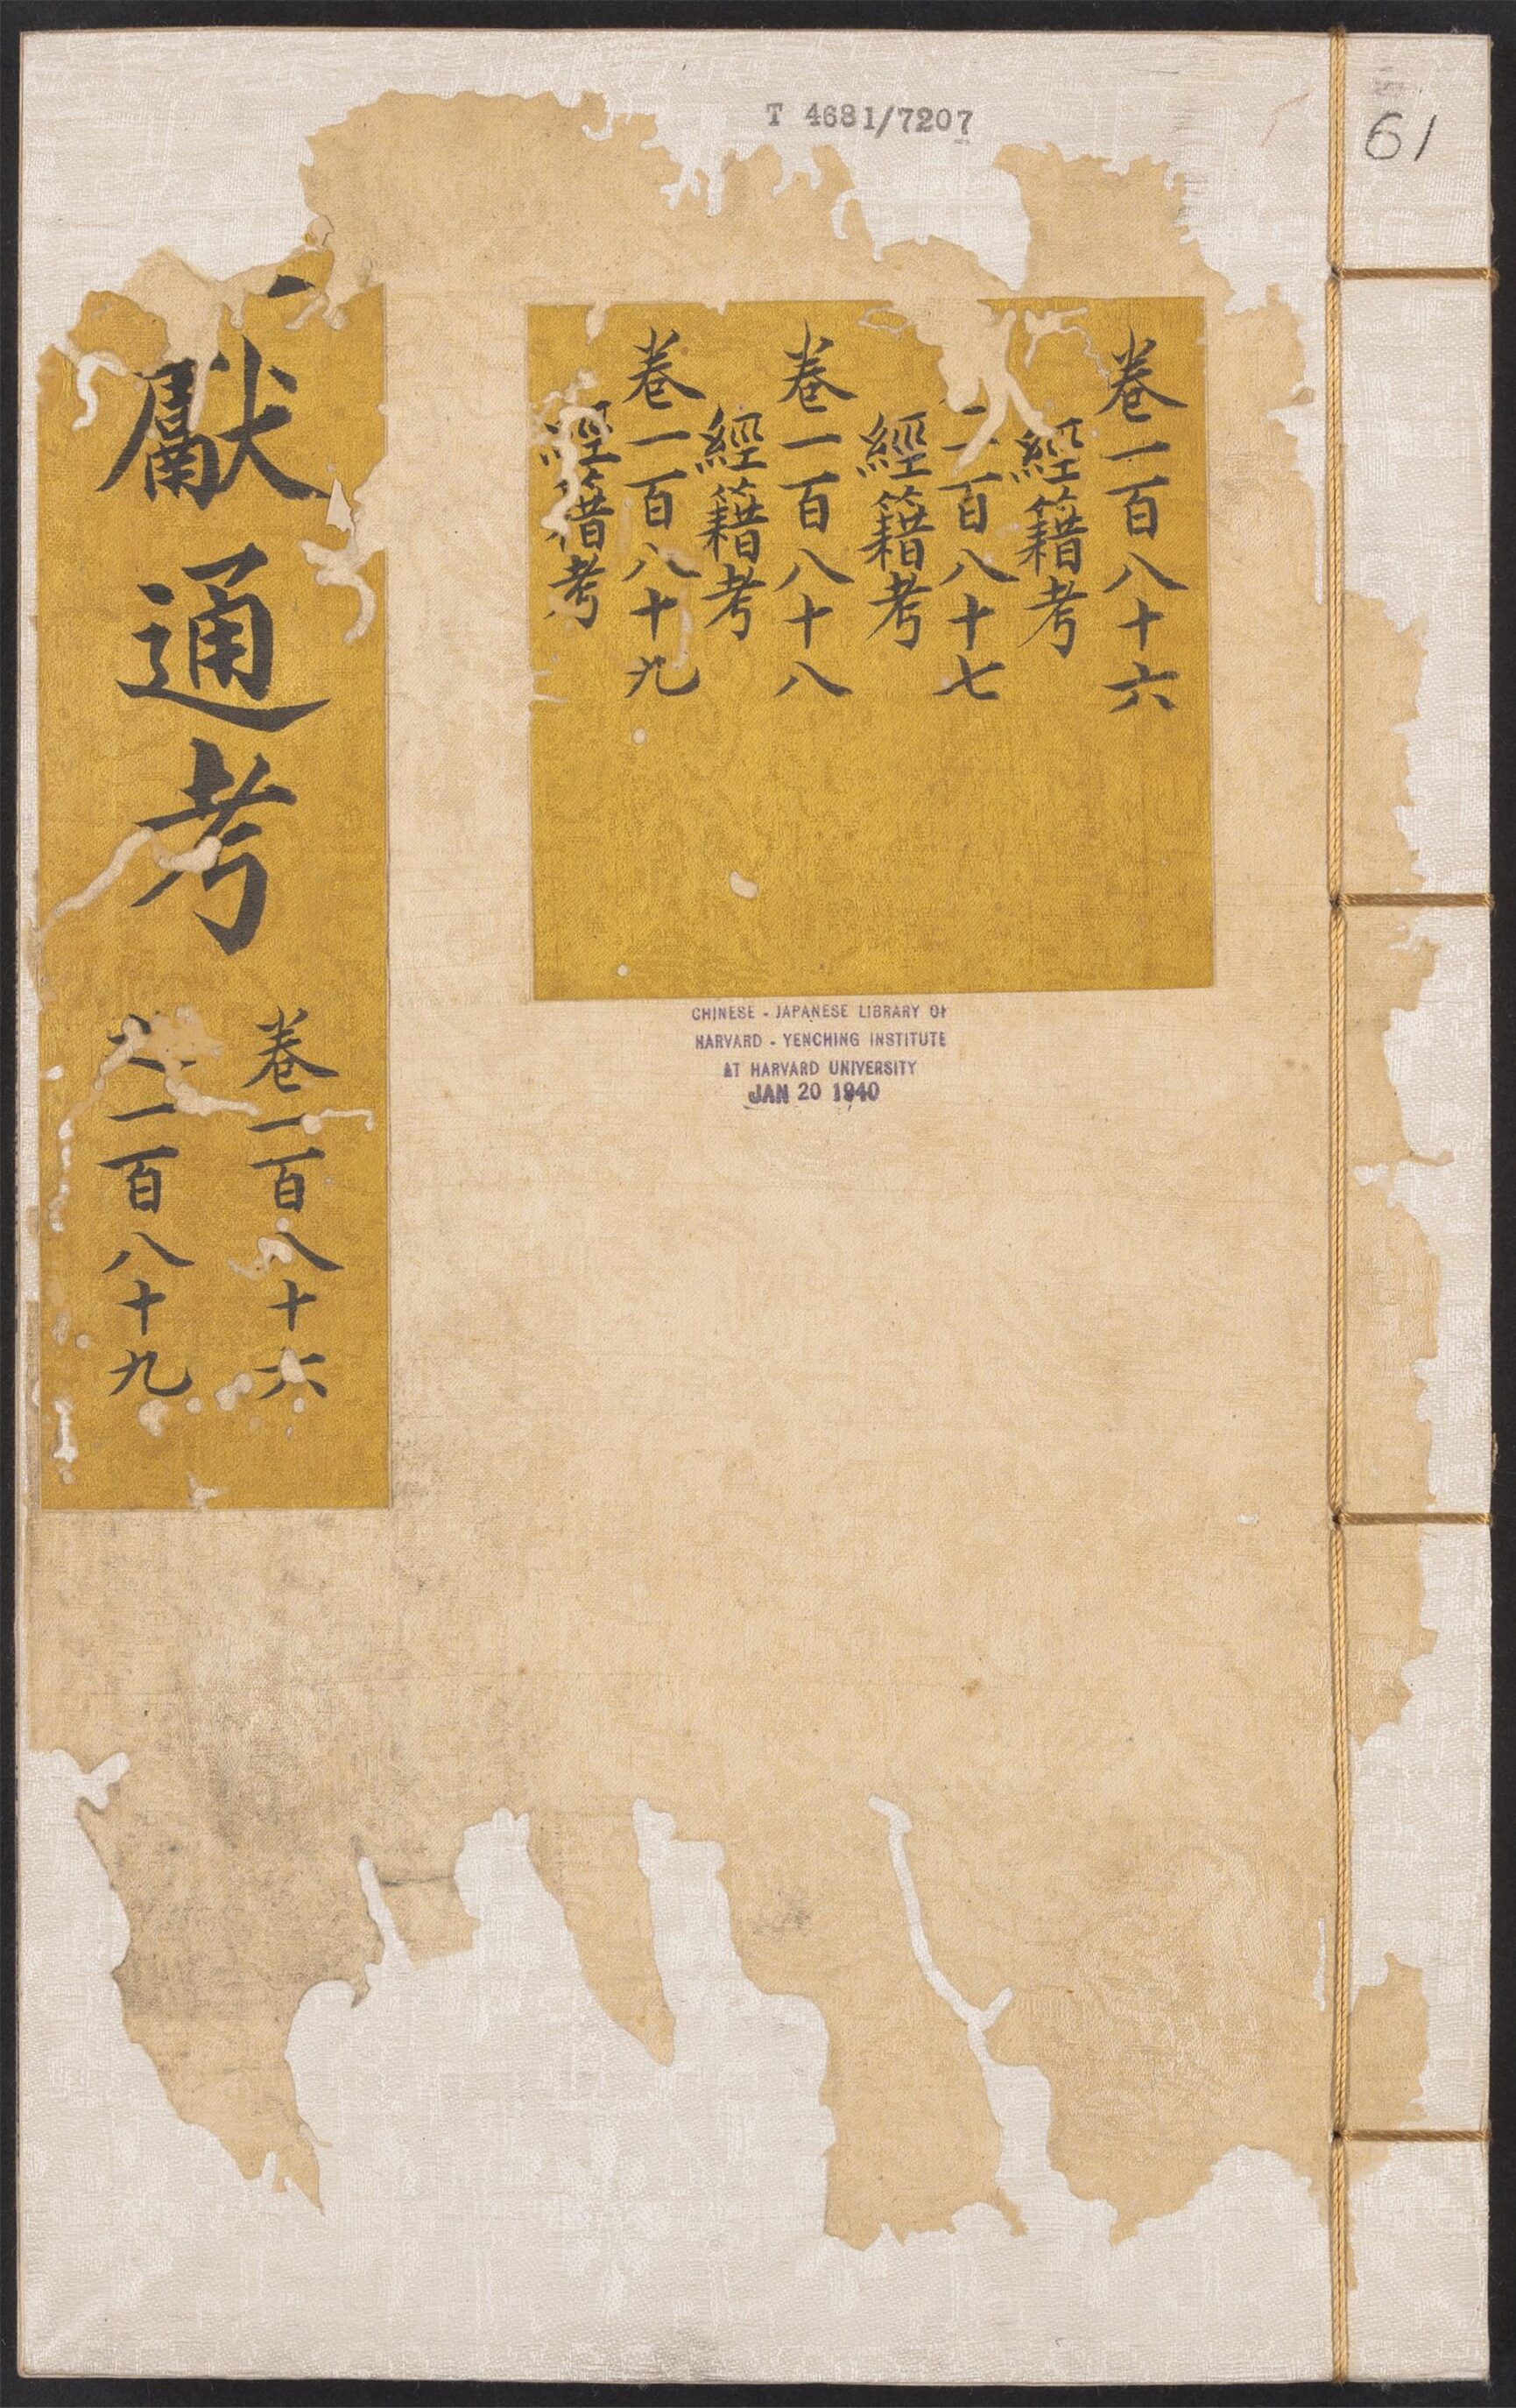 T 4681/7207
61
卷一百八十六
經籍考
一百八十七
經籍考
卷一百八十八
經籍考
卷一百八十九
經籍考
獻通考
卷一百八十六
一百八十九
CHINESE - JAPANESE LIBRARY OF
HARVARD - YENCHING INSTITUTE
AT HARVARD UNIVERSITY
JAN 20 1940